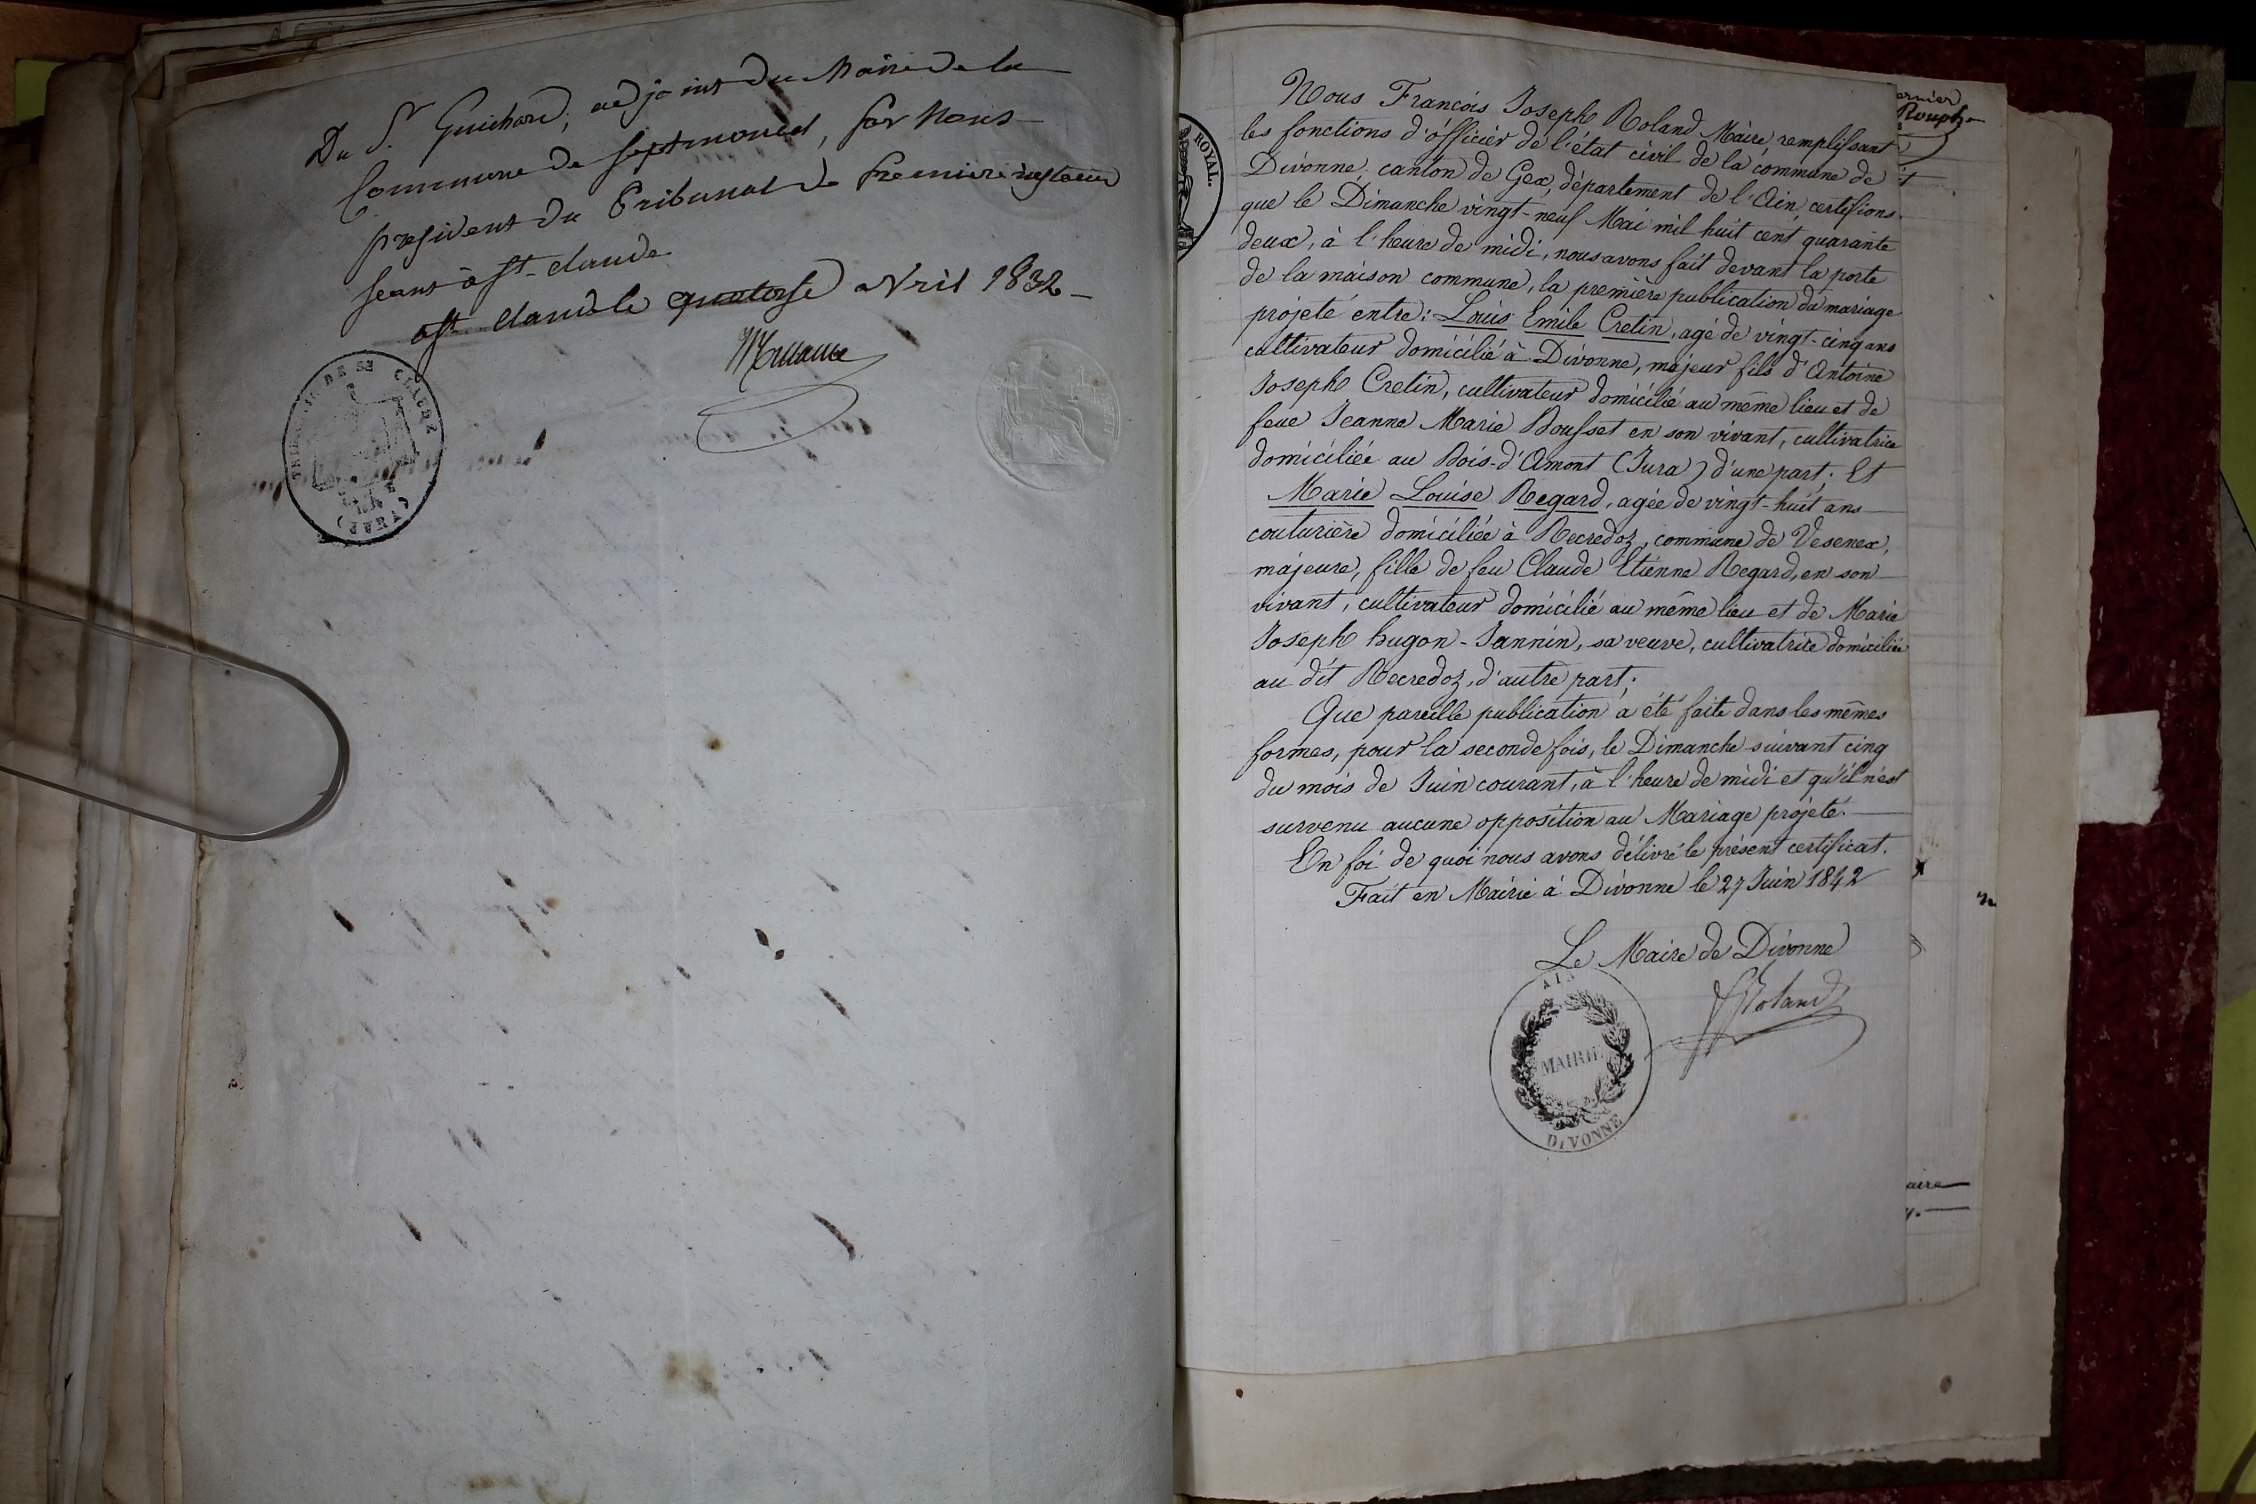 Du Sr Guichard, adjoint du Maire de la
Commune de Septmoncel, par Nous
président du Tribunal de Premiere instance
séant à St-claude
a St claude le quatorse avril 1832
TRIBUNAL DE ST CLAUDE
(JURA)
ROYAL.
Nous François Joseph Roland Maire, remplissant
les fonctions d'officier de l'état civil de la commune de
Divonne, canton de Gex, département de l'Ain, certifions
que le Dimanche vingt-neuf Mai mil huit cent quarante
deux, à l'heure de midi, nous avons fait devant la porte
de la maison commune, la première publication du mariage
projeté entre: Louis Emile Cretin, agé de vingt-cinq ans
cultivateur domicilié à Divonne, majeur fils d'Antoine
Joseph Cretin, cultivateur domicilié au même lieu et de
feue Jeanne Marie Bousset en son vivant, cultivatrice
domiciliée au Bois-d'Amont (Jura) d'une part. Et
Marie Louise Regard, agée de vingt-huit ans
couturière domiciliée à Recredoz, commune de Vesenex,
majeure, fille de feu Claude Etienne Regard, en son
vivant, cultivateur domicilié au même lieu et de Marie
Joseph hugon-Jannin, sa veuve, cultivatrice domiciliée
au dit Recredoz, d'autre part.
Que pareille publication a été faite dans les mêmes
formes, pour la seconde fois, le Dimanche suivant cinq
du mois de Juin courant, à l'heure de midi et qu'il n'est
survenu aucune opposition au Mariage projeté.
En foi de quoi nous avons délivré le présent certificat.
Fait en Mairie à Divonne le 27 Juin 1842
Le Maire de Divonne
Roland
AIN
MAIRIE
DIVONNE
ernier
Rouph
aire